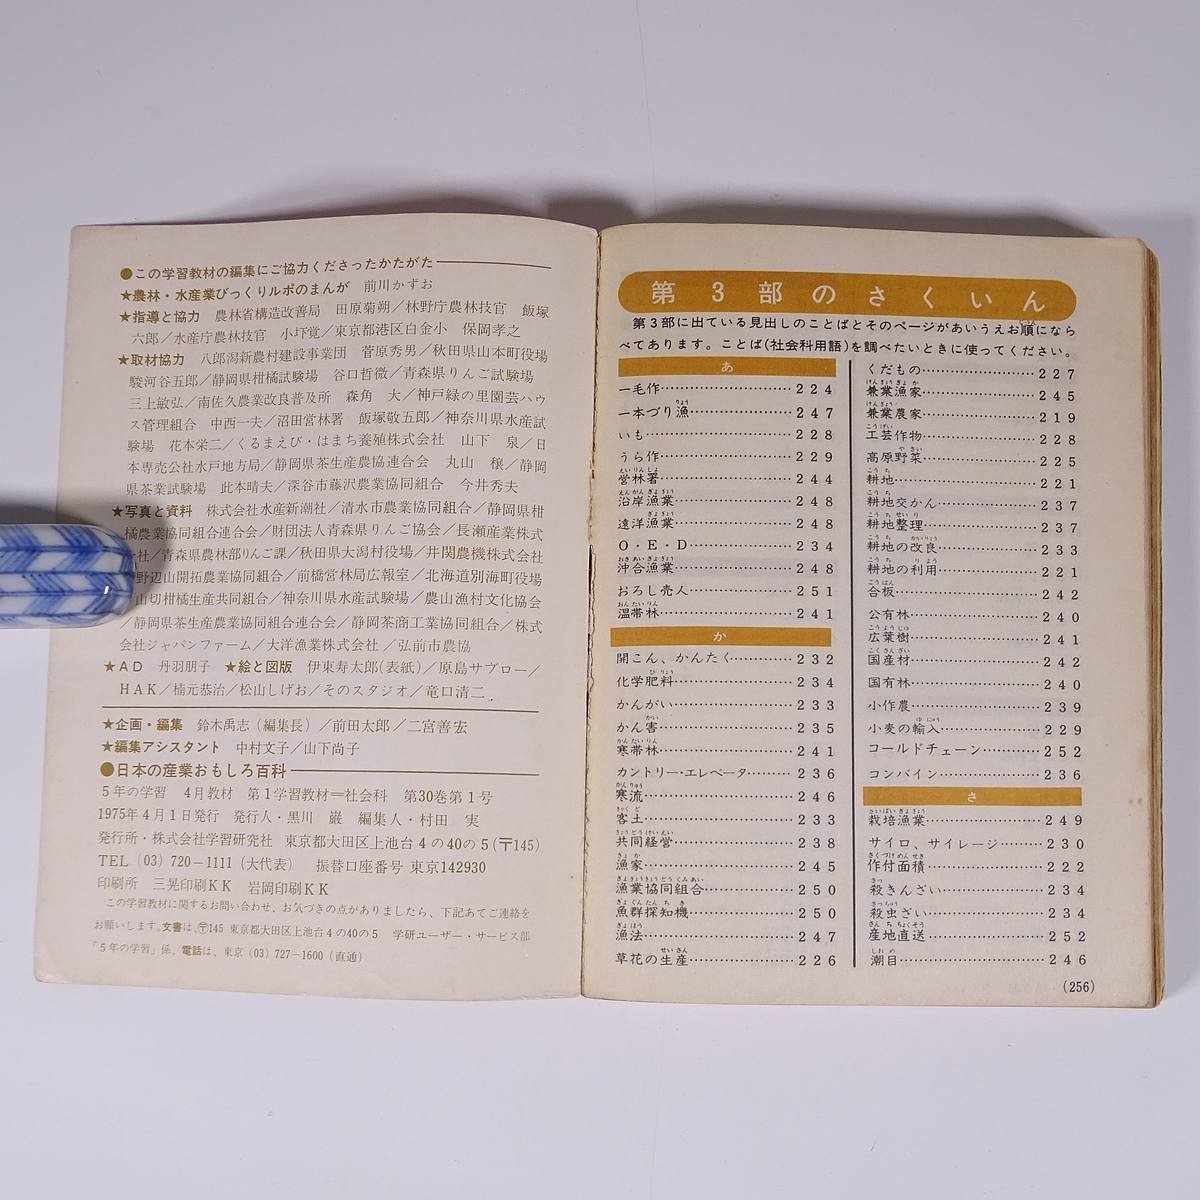 ●この学習教材の編集にご協力くださったかたがた
★農林・水産業びっくりルポのまんが　前川かずお
★指導と協力　農林省構造改善局　田原菊朔／林野庁農林技官　飯塚
六郎／水産庁農林技官　小圷覚／東京都港区白金小　保岡孝之
★取材協力　八郎潟新農村建設事業団　菅原秀男／秋田県山本町役場
駿河谷五郎／静岡県柑橘試験場　谷口哲微／青森県りんご試験場
三上敏弘／南佐久農業改良普及所　森角　大／神戸緑の里園芸ハウ
ス管理組合　中西一夫／沼田営林署　飯塚敬五郎／神奈川県水産試
験場　花本栄二／くるまえび・はまち養殖株式会社　山下　泉／日
本専売公社水戸地方局／静岡県茶生産農協連合会　丸山　穣／静岡
県茶業試験場　此本晴夫／深谷市藤沢農業協同組合　今井秀夫
★写真と資料　株式会社水産新潮社／清水市農業協同組合／静岡県柑
橘農業協同組合連合会／財団法人青森県りんご協会／長瀬産業株式
会社／青森県農林部りんご課／秋田県大潟村役場／井関農機株式会社
野辺山開拓農業協同組合／前橋営林局広報室／北海道別海町役場
山切柑橘生産共同組合／神奈川県水産試験場／農山漁村文化協会
／静岡県茶生産農業協同組合連合会／静岡茶商工業協同組合／株式
会社ジャパンファーム／大洋漁業株式会社／弘前市農協
★AD　丹羽朋子　★絵と図版　伊東寿太郎(表紙)／原島サブロー／
HAK／楠元恭治／松山しげお／そのスタジオ／竜口清二
★企画・編集　鈴木禹志(編集長)／前田太郎／二宮善宏
★編集アシスタント　中村文子／山下尚子
●日本の産業おもしろ百科
5年の学習　4月教材　第1学習教材＝社会科　第30巻第1号
1975年4月1日発行　発行人・黒川　巌　編集人・村田　実
発行所・株式会社学習研究社　東京都大田区上池台4の40の5(〒145)
TEL(03)720－1111(大代表)　振替口座番号 東京142930
印刷所　三晃印刷KK　岩岡印刷KK
この学習教材に関するお問い合わせ、お気づきの点がありましたら、下記あてご連絡を
お願いします。文書は、〒145 東京都大田区上池台4の40の5　学研ユーザー・サービス部
「5年の学習」係、電話は、東京(03)727－1600(直通)
第3部のさくいん
第3部に出ている見出しのことばとそのページがあいうえお順になら
べてあります。ことば(社会科用語)を調べたいときに使ってください。
あ
一毛作……224
一本づり漁……247
いも……228
うら作……229
営林署……244
沿岸漁業……248
遠洋漁業……248
O・E・D……234
沖合漁業……248
おろし売人……251
温帯林……241
か
開こん、かんたく……232
化学肥料……234
かんがい……233
かん害……235
寒帯林……241
カントリー・エレベータ……236
寒流……246
客土……233
共同経営……238
漁家……245
漁業協同組合……250
魚群探知機……250
漁法……247
草花の生産……226
くだもの……227
兼業漁家……245
兼業農家……219
工芸作物……228
高原野菜……225
耕地……221
耕地交かん……237
耕地整理……237
耕地の改良……233
耕地の利用……221
合板……242
公有林……240
広葉樹……241
国産材……242
国有林……240
小作農……239
小麦の輸入……229
コールドチェーン……252
コンバイン……236
さ
栽培漁業……249
サイロ、サイレージ……230
作付面積……222
殺きんざい……234
殺虫ざい……234
産地直送……252
潮目……246
(256)